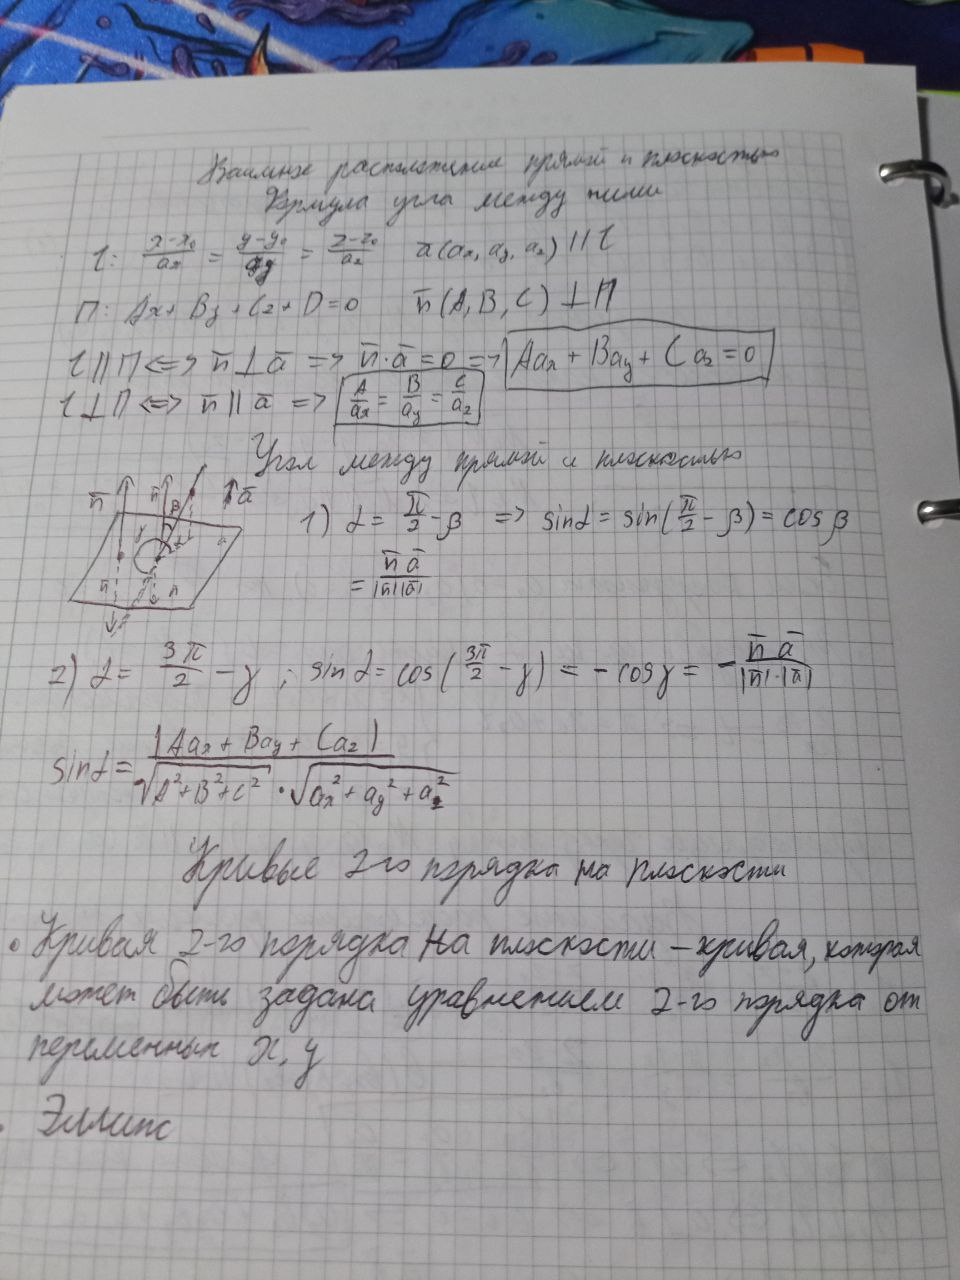 Взаимное расположение прямой и плоскостью
Формула угла между ними
l: (x-x₀)/aₓ = (y-y₀)/a_y = (z-z₀)/a_z a(aₓ, a_y, a_z) || l
П: Ax + By + Cz + D = 0 n̄(A, B, C) ⊥ П
l || П <=> n̄ ⊥ ā => n̄·ā = 0 => Aaₓ + Ba_y + Ca_z = 0
l ⊥ П <=> n̄ || ā => A/aₓ = B/a_y = C/a_z
Угол между прямой и плоскостью
n̄ n̄ β ā
1) α = π/2 - β => sinα = sin(π/2 - β) = cos β
= n̄ ā / |n̄||ā|
n̄ n̄
2) α = 3π/2 - γ ; sin α = cos(3π/2 - γ) = - cos γ = - n̄ ā / |n̄|·|ā|
sinα = |Aaₓ + Ba_y + Ca_z| / √(A² + B² + C²) · √(aₓ² + a_y² + a_z²)
Кривые 2-го порядка на плоскости
• Кривая 2-го порядка на плоскости – кривая, которая
может быть задана уравнением 2-го порядка от
переменных x, y
• Эллипс